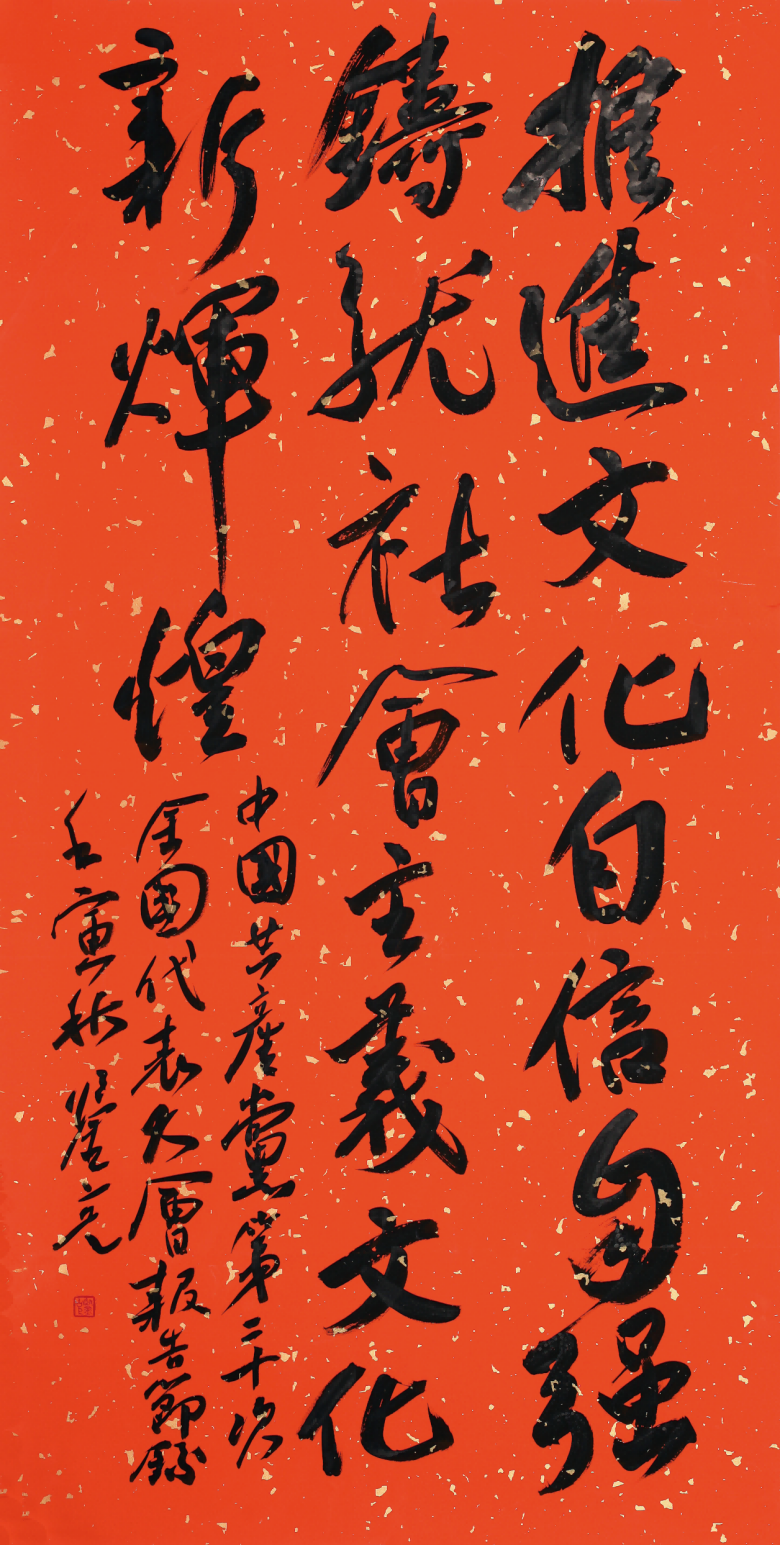 推進文化自信自强
鑄就社會主義文化
新輝煌
中國共産黨第二十次
全國代表大會報告節録
壬寅秋 翟亮